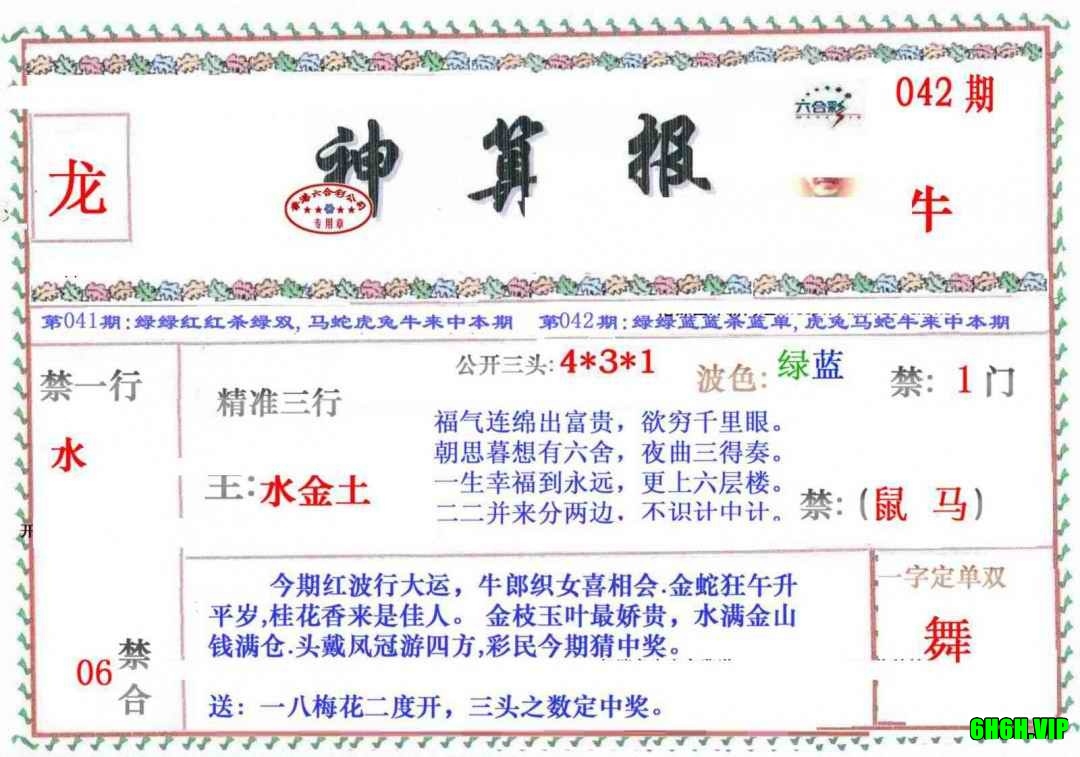 042 期
六合彩
龙
神算报
香港六合彩公司
专用章
牛
第041期:绿绿红红杀绿双,马蛇虎兔牛来中本期
第042期:绿绿蓝蓝杀蓝单,虎兔马蛇牛来中本期
禁一行
水
精准三行
王:水金土
公开三头:4*3*1
波色:绿蓝
禁: 1 门
福气连绵出富贵，欲穷千里眼。
朝思暮想有六舍，夜曲三得奏。
一生幸福到永远，更上六层楼。
二二并来分两边，不识计中计。
禁:(鼠 马)
开
今期红波行大运，牛郎织女喜相会.金蛇狂午升
平岁,桂花香来是佳人。金枝玉叶最娇贵，水满金山
钱满仓.头戴凤冠游四方,彩民今期猜中奖。
一字定单双
舞
06
禁合
送：一八梅花二度开，三头之数定中奖。
6H6H.VIP